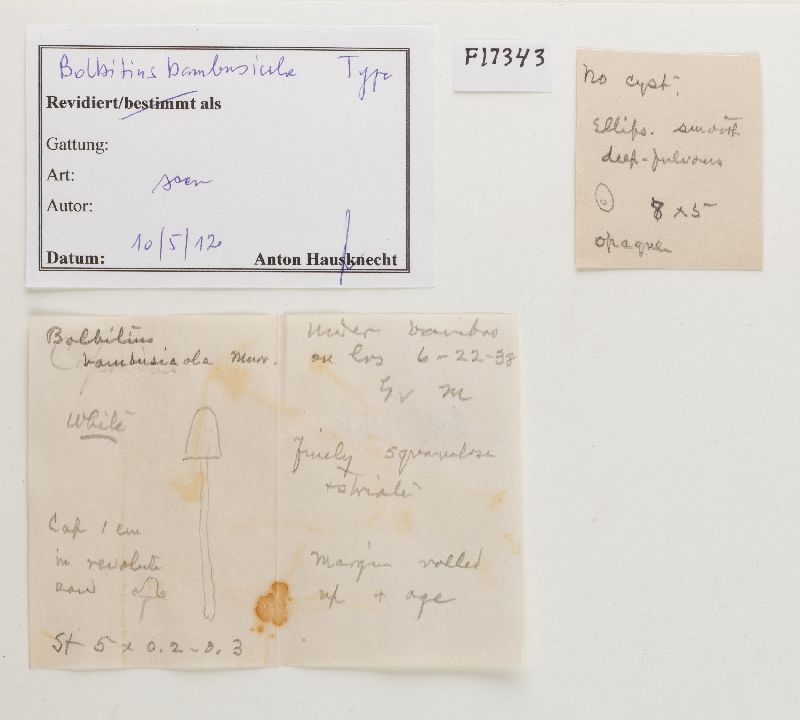 Bolbitius bambusicola Type
Revidiert/bestimmt als
Gattung:
Art: seen
Autor:
Datum: 10/5/12 Anton Hausknecht
F17343
No cyst.
Ellips. smooth
deep-fulvous
8 x 5
opaque
Bolbitius
bambusicola Murr.
White
Cap 1 cm
in revolute
St 5 x 0.2-0.3
Under bamboo
on lvs 6-22-38
M
finely squamulose
+ striate
Margin rolled
up + age